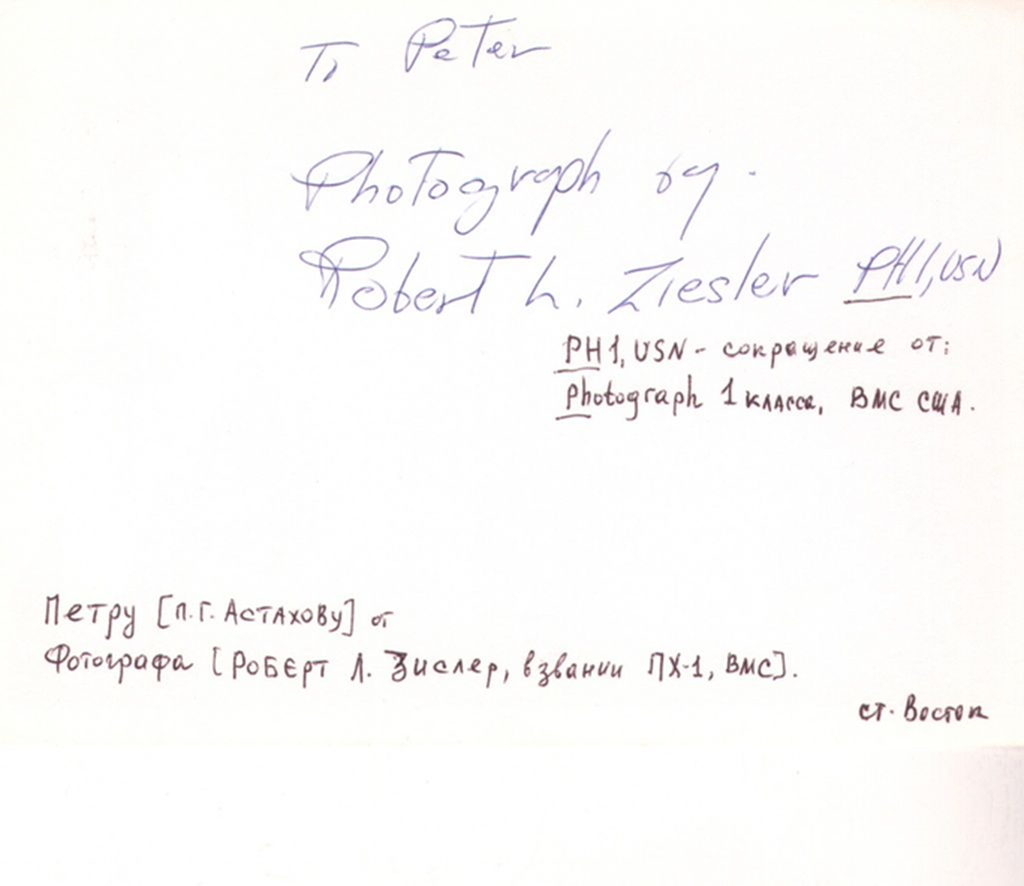 To Peter
Photograph by.
Robert L. Ziesler PH1, USN
PH1, USN - сокращение от:
Photograph 1 класса, ВМС США.
Петру [П.Г. Астахову] от
Фотографа [Роберт Л. Зислер, в звании ПХ-1, ВМС].
ст. Восток